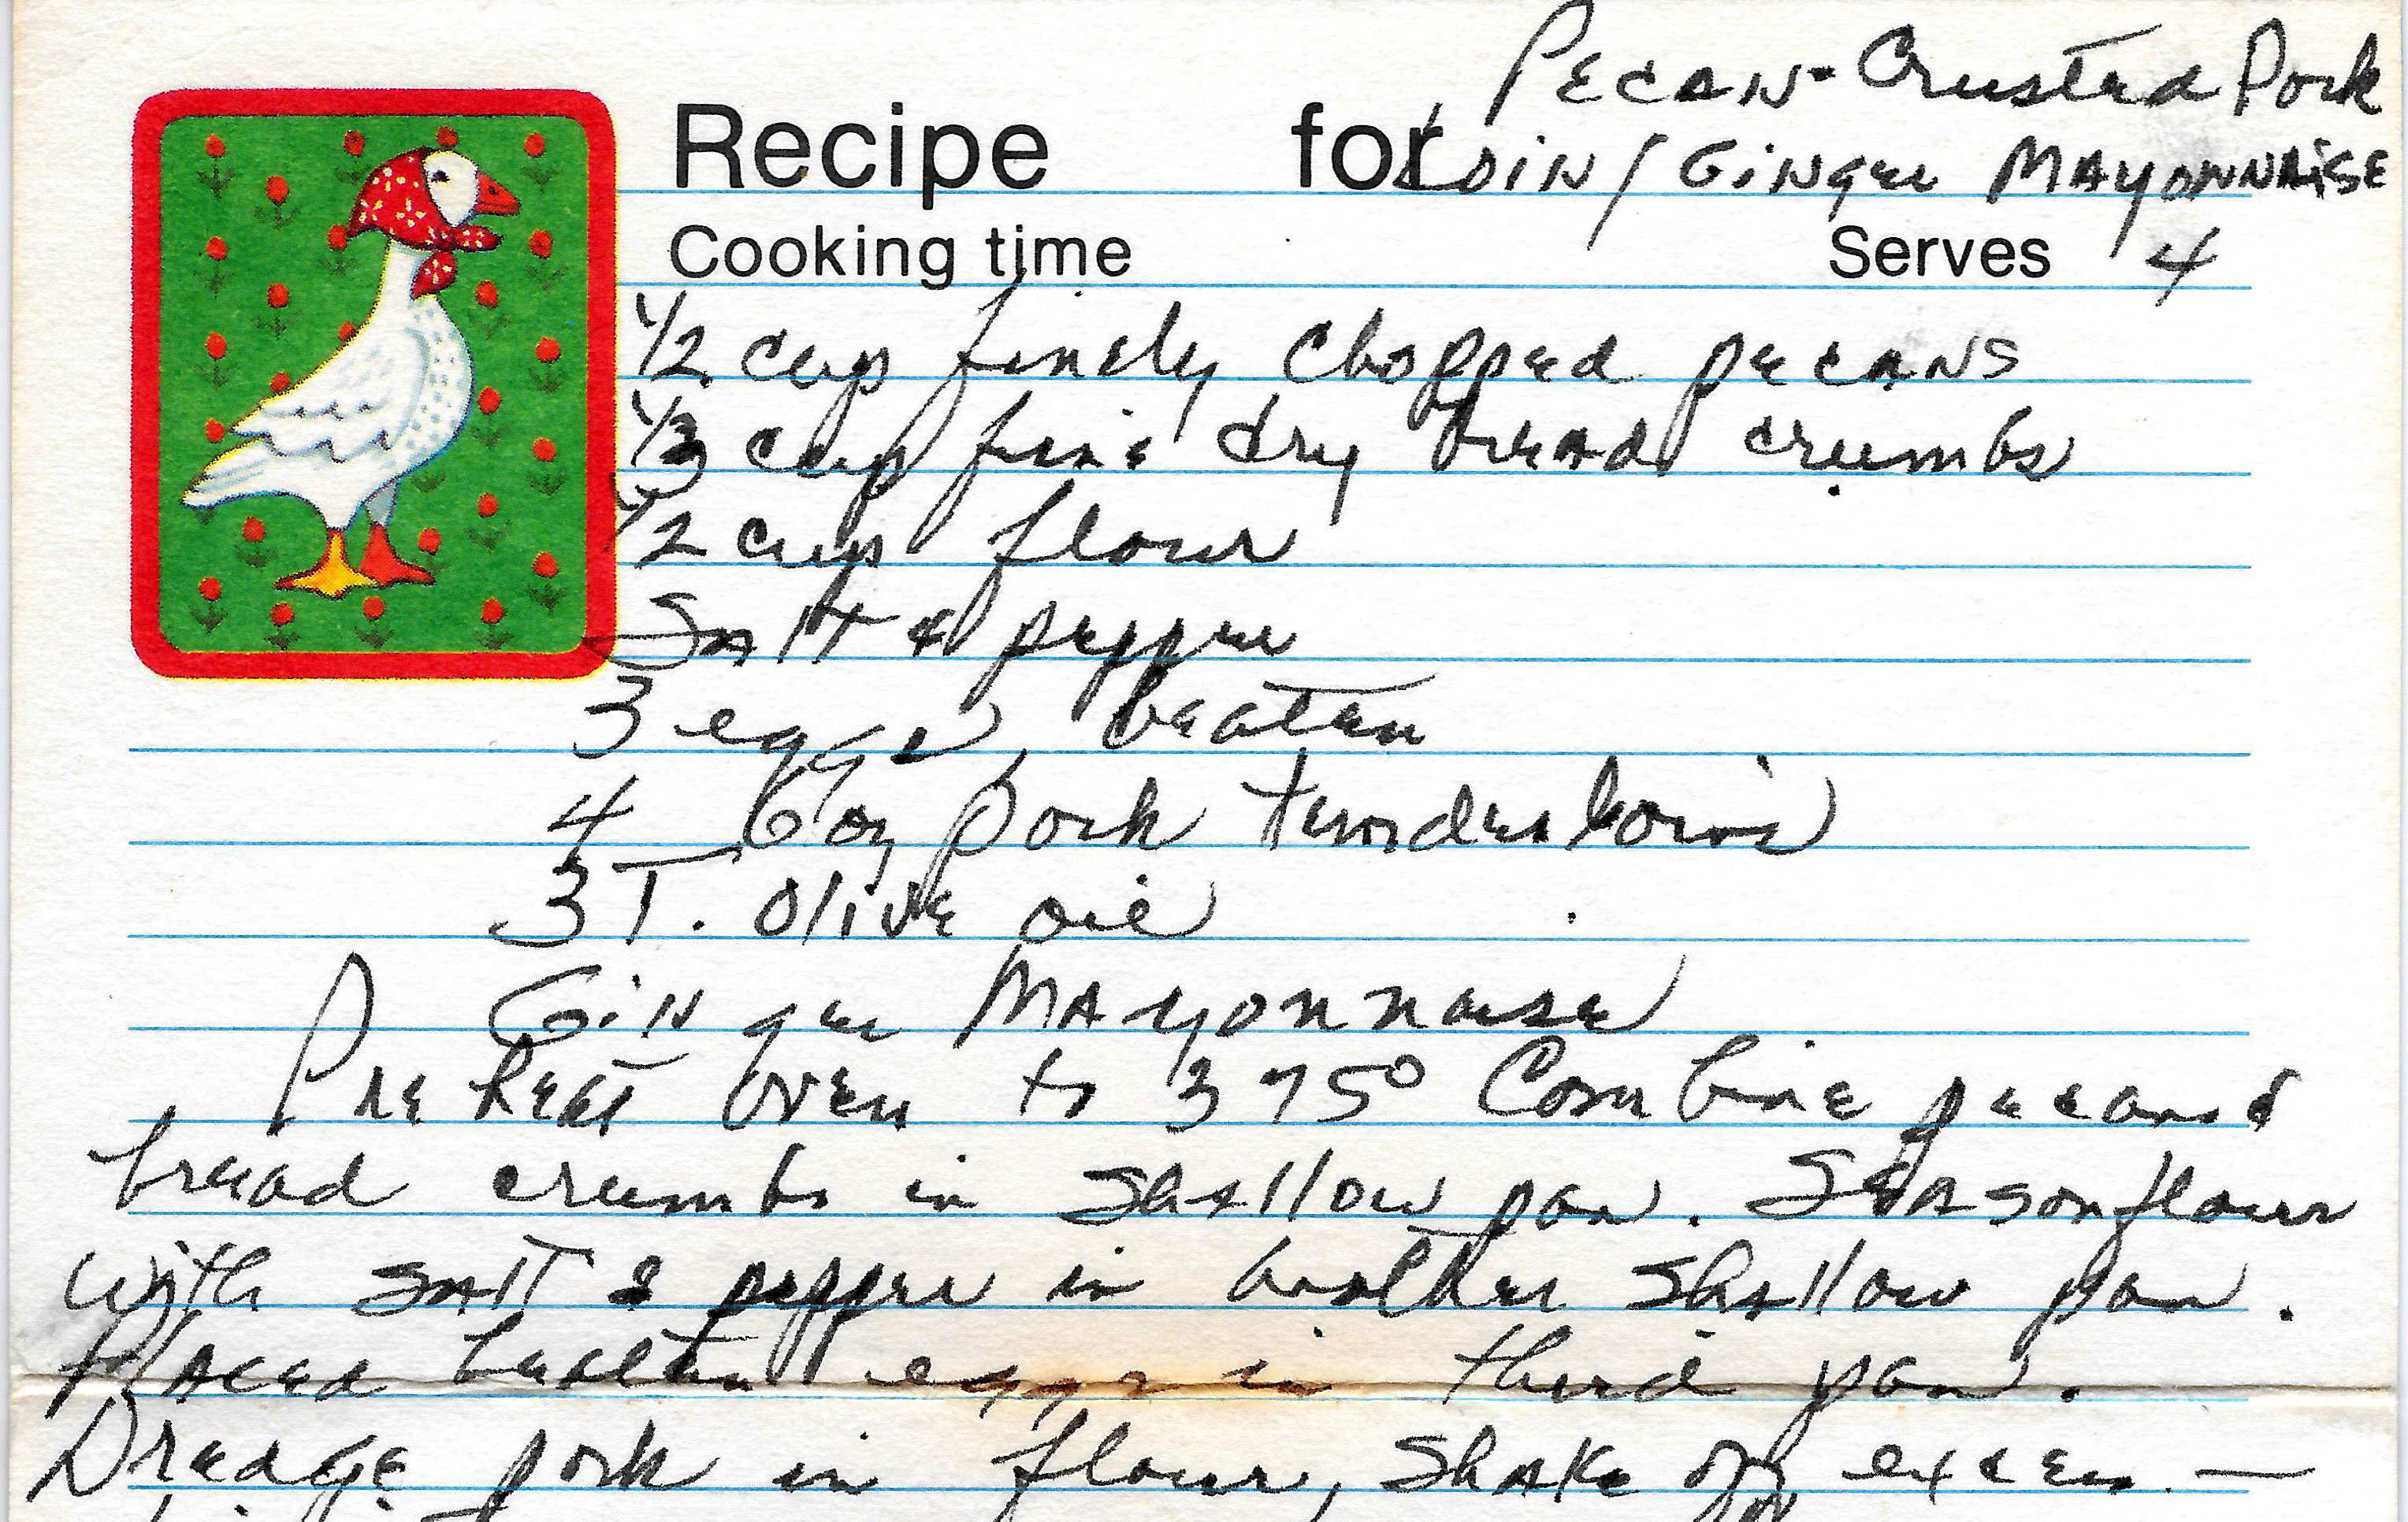 Pecan-Crusted Pork
Recipe for Loin / Ginger Mayonnaise
Cooking time Serves 4
1/2 cup finely chopped pecans
1/3 cup fine dry bread crumbs
1/2 cup flour
Salt & pepper
3 eggs, beaten
4 6oz pork tenderloins
3 T. Olive oil
Ginger Mayonnaise
Preheat oven to 375° Combine pecans &
bread crumbs in shallow pan. Season flour
with salt & pepper in another shallow pan.
Placed beaten eggs in third pan.
Dredge pork in flour, shake off excess —